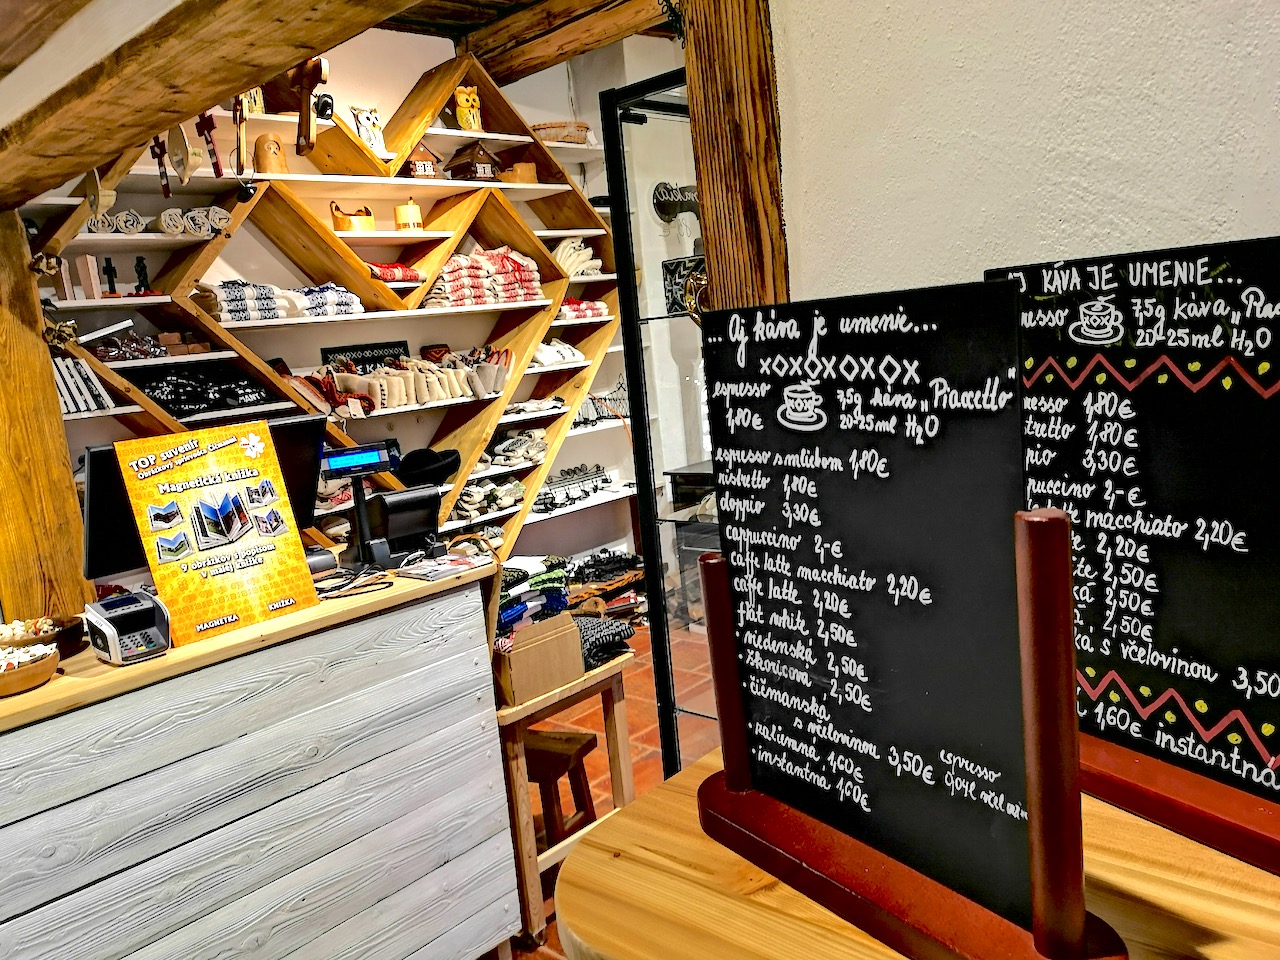 TOP suvenír
Obrázkový sprievodca Čičmanmi
Magnetická knižka
9 obrázkov s popisom
v malej knižke
MAGNETKA
KNIŽKA
... Aj káva je umenie...
XOXOXOXOX
espresso
1,80€
7,5g káva „Piacetto“
20-25ml H2O
espresso s mliekom 1,80€
ristretto 1,80€
doppio 3,30€
cappuccino 2,-€
caffe latte macchiato 2,20€
caffe latte 2,20€
flat white 2,50€
• viedenská 2,50€
• škoricová 2,50€
• čičmanská
s včelovinou 3,50€
espresso
• zalievaná 1,60€
• instantná 1,60€
KÁVA JE UMENIE...
7,5g káva „
20-25ml H2O
1,80€
1,80€
3,30€
2,-€
macchiato 2,20€
2,20€
2,50€
2,50€
2,50€
s včelovinou 3,50
1,60€ instantná